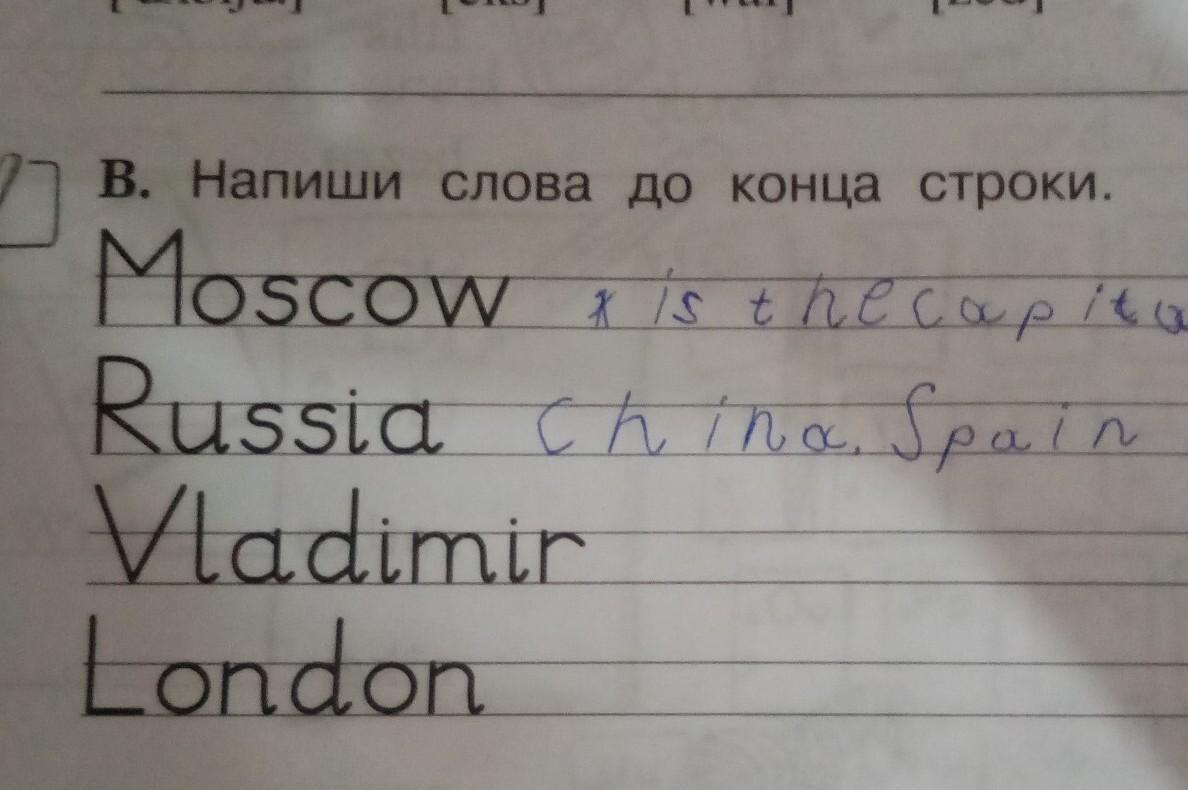 B. Напиши слова до конца строки.
Moscow is the capita
Russia China. Spain
Vladimir
London